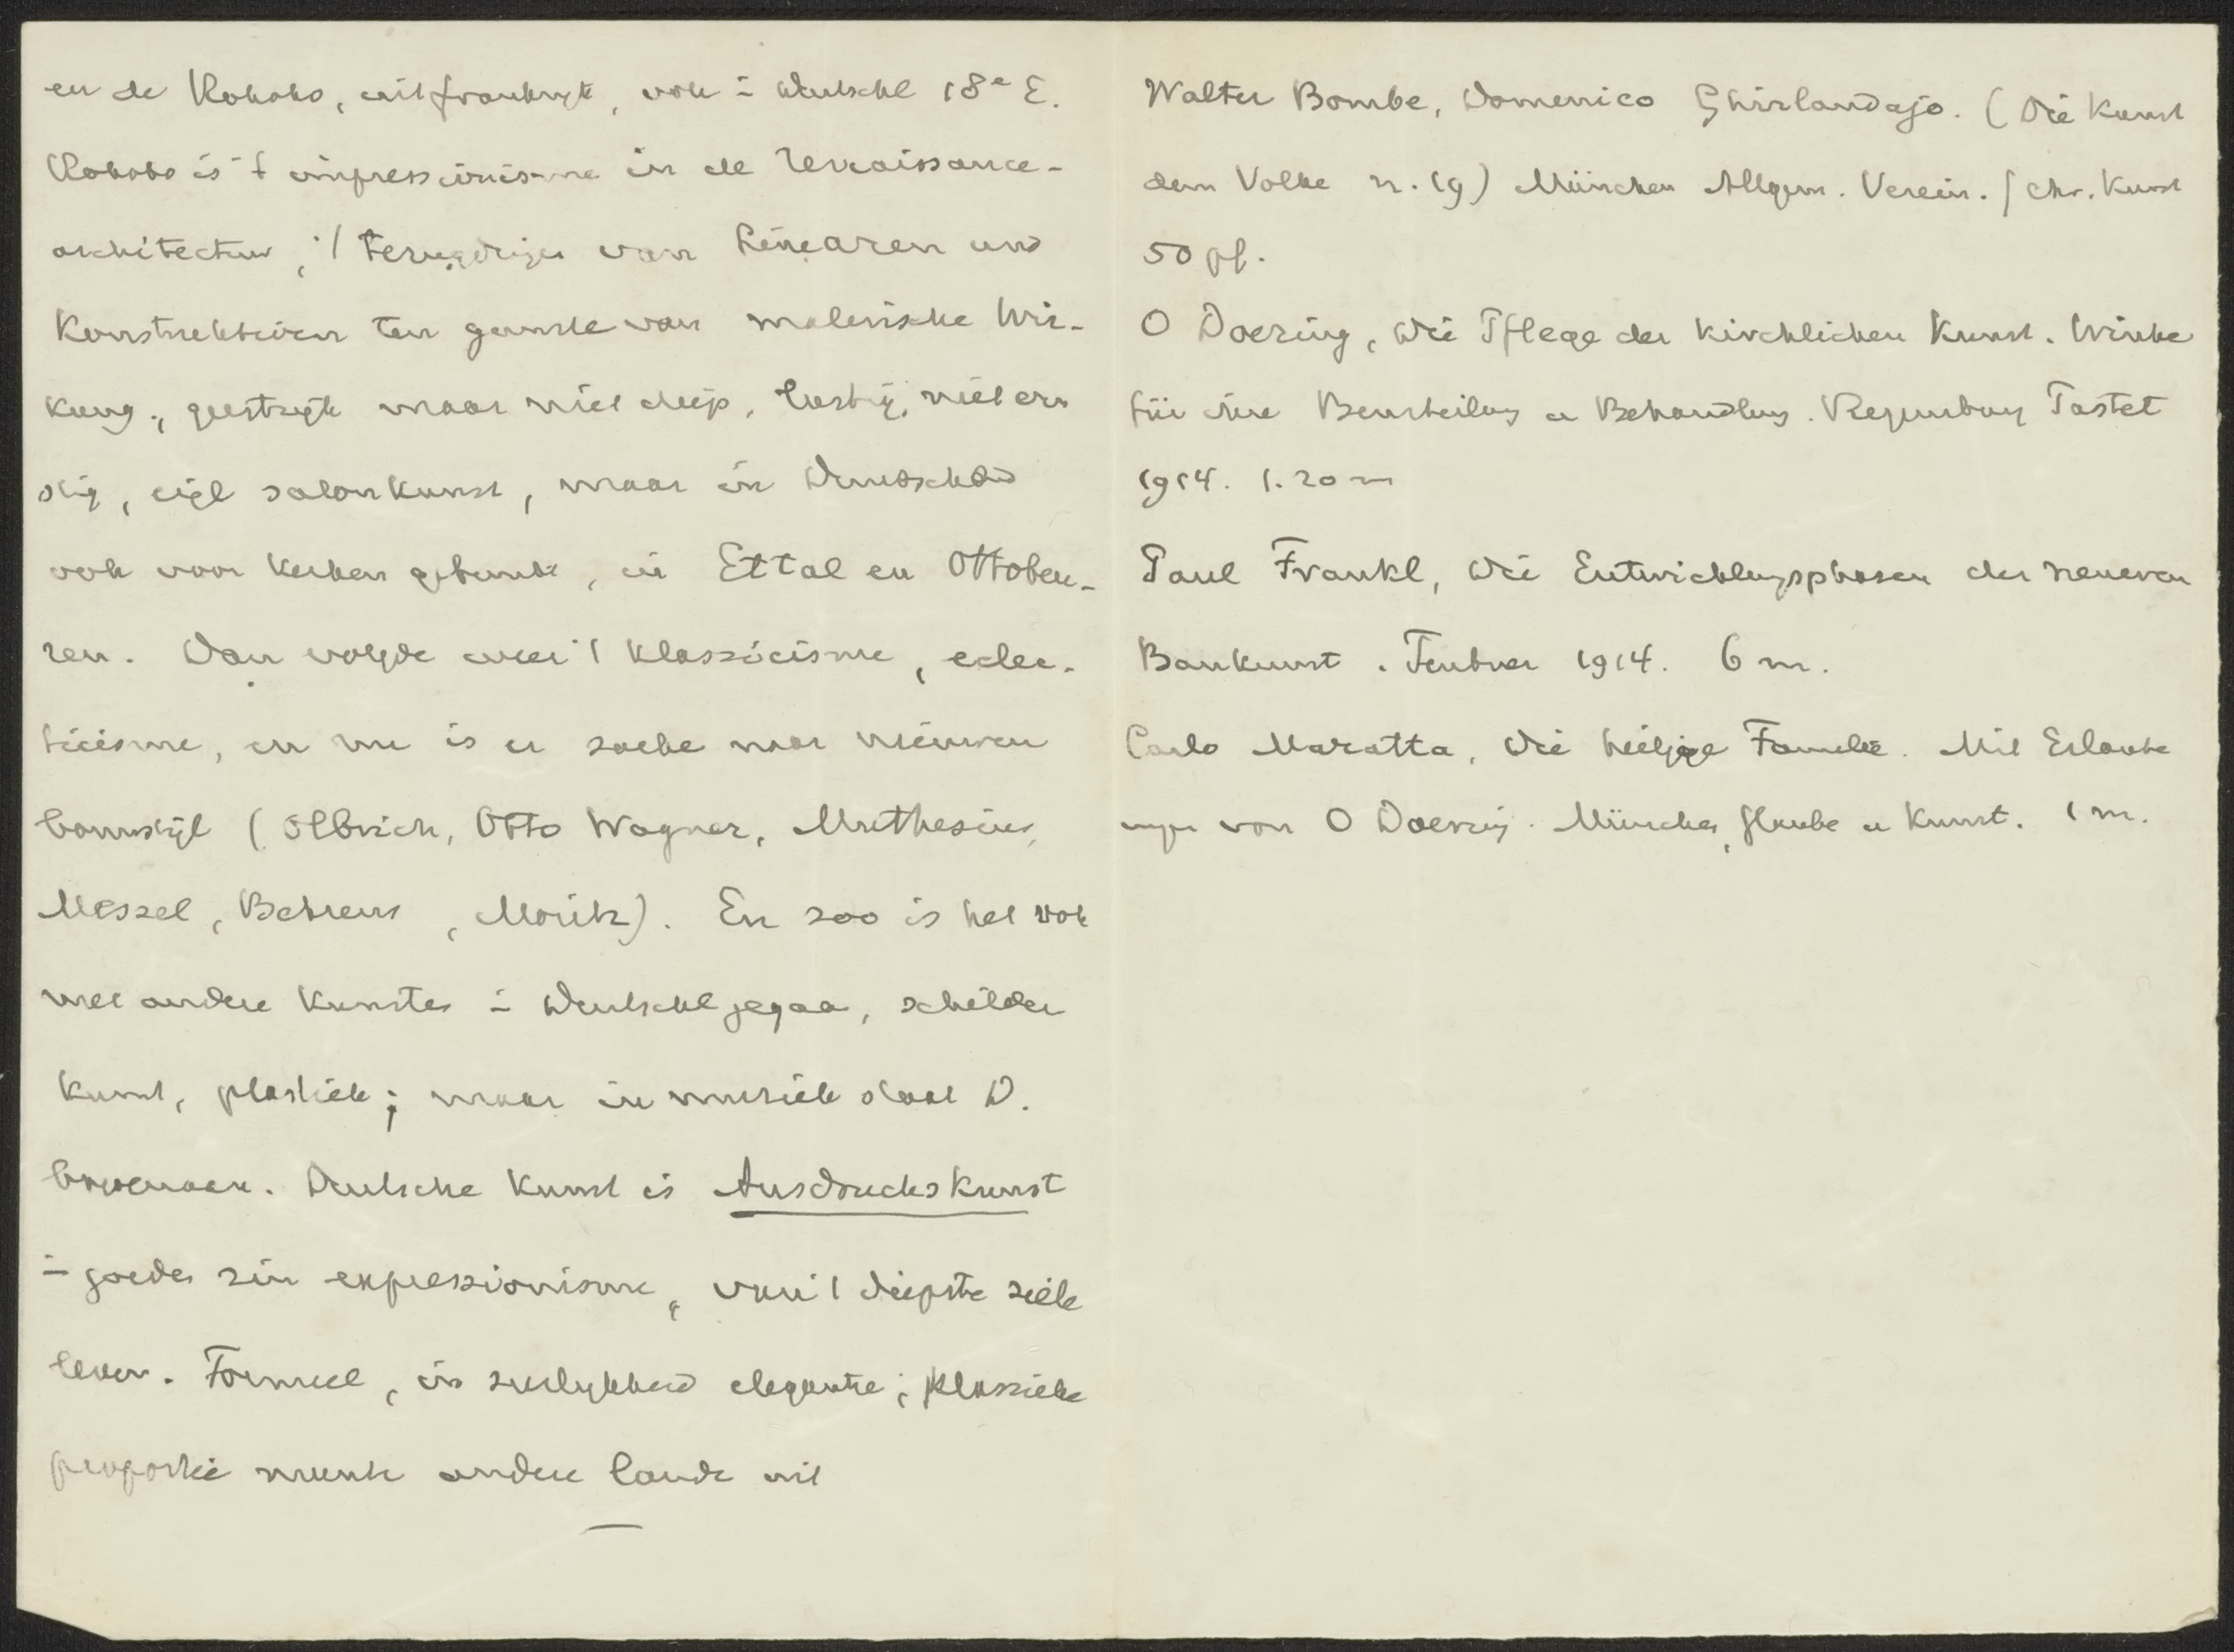 en de Rokoko, uit frankryk, ook i Deutschl 18e E.
Rokoko is 't impressionisme in de Renaissance-
architectuur, 't terugdringen van Linearen und
Konstruktiven ten gunste van malerische Wir-
kung; geestryk maar niet diep, lustig, niet ern
stig, eigl salonkunst, maar in Deutschld
ook voor kerken gebruikt, in Ettal en Ottobeu-
ren. Dan volgde weer 't klassicisme, eclec-
ticisme, en nu is er zoeke naar nieuwen
bouwstijl (Olbrich, Otto Wagner, Muthesius,
Messel, Behrens, Moritz). En zoo is het ook
met andere kunsten i Deutschl gegaa, schilder
kunst, plastiek; maar in muziek staat D.
bovenaan. Deutsche Kunst is Ausdruckskunst
i goeden zin expressionisme, van 't diepste ziele
leven. Formeel, in sierlykheid elegantie, klassieke
proportie munte andere lande uit
Walter Bombe, Domenico Ghirlandajo. (Die Kunst
dem Volke n. 19) München Allgem. Verein. f chr. Kunst
50 pf.
O Doering, Die Pflege der kirchlichen Kunst. Winke
für ihre Beurteilung u Behandlung. Regensburg Pustet
1914. 1.20 m
Paul Frankl, Die Entwicklungsphasen der neueren
Baukunst. Teubner 1914. 6 m.
Carlo Maratta, Die heilige Familie. Mit Erläute
ungen von O Doering. München, Glaube u Kunst. 1 m.